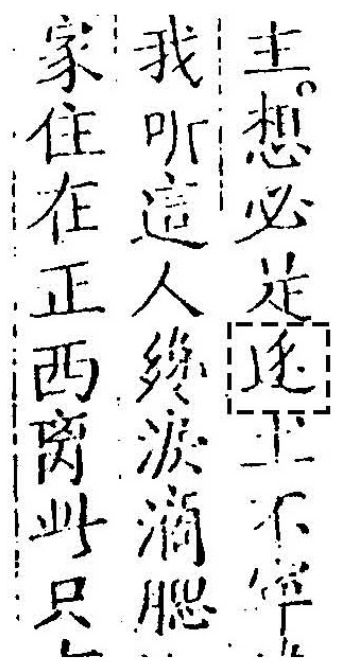 主。想必是土不寧
我听這人淚滴腮
家住在正西离此只